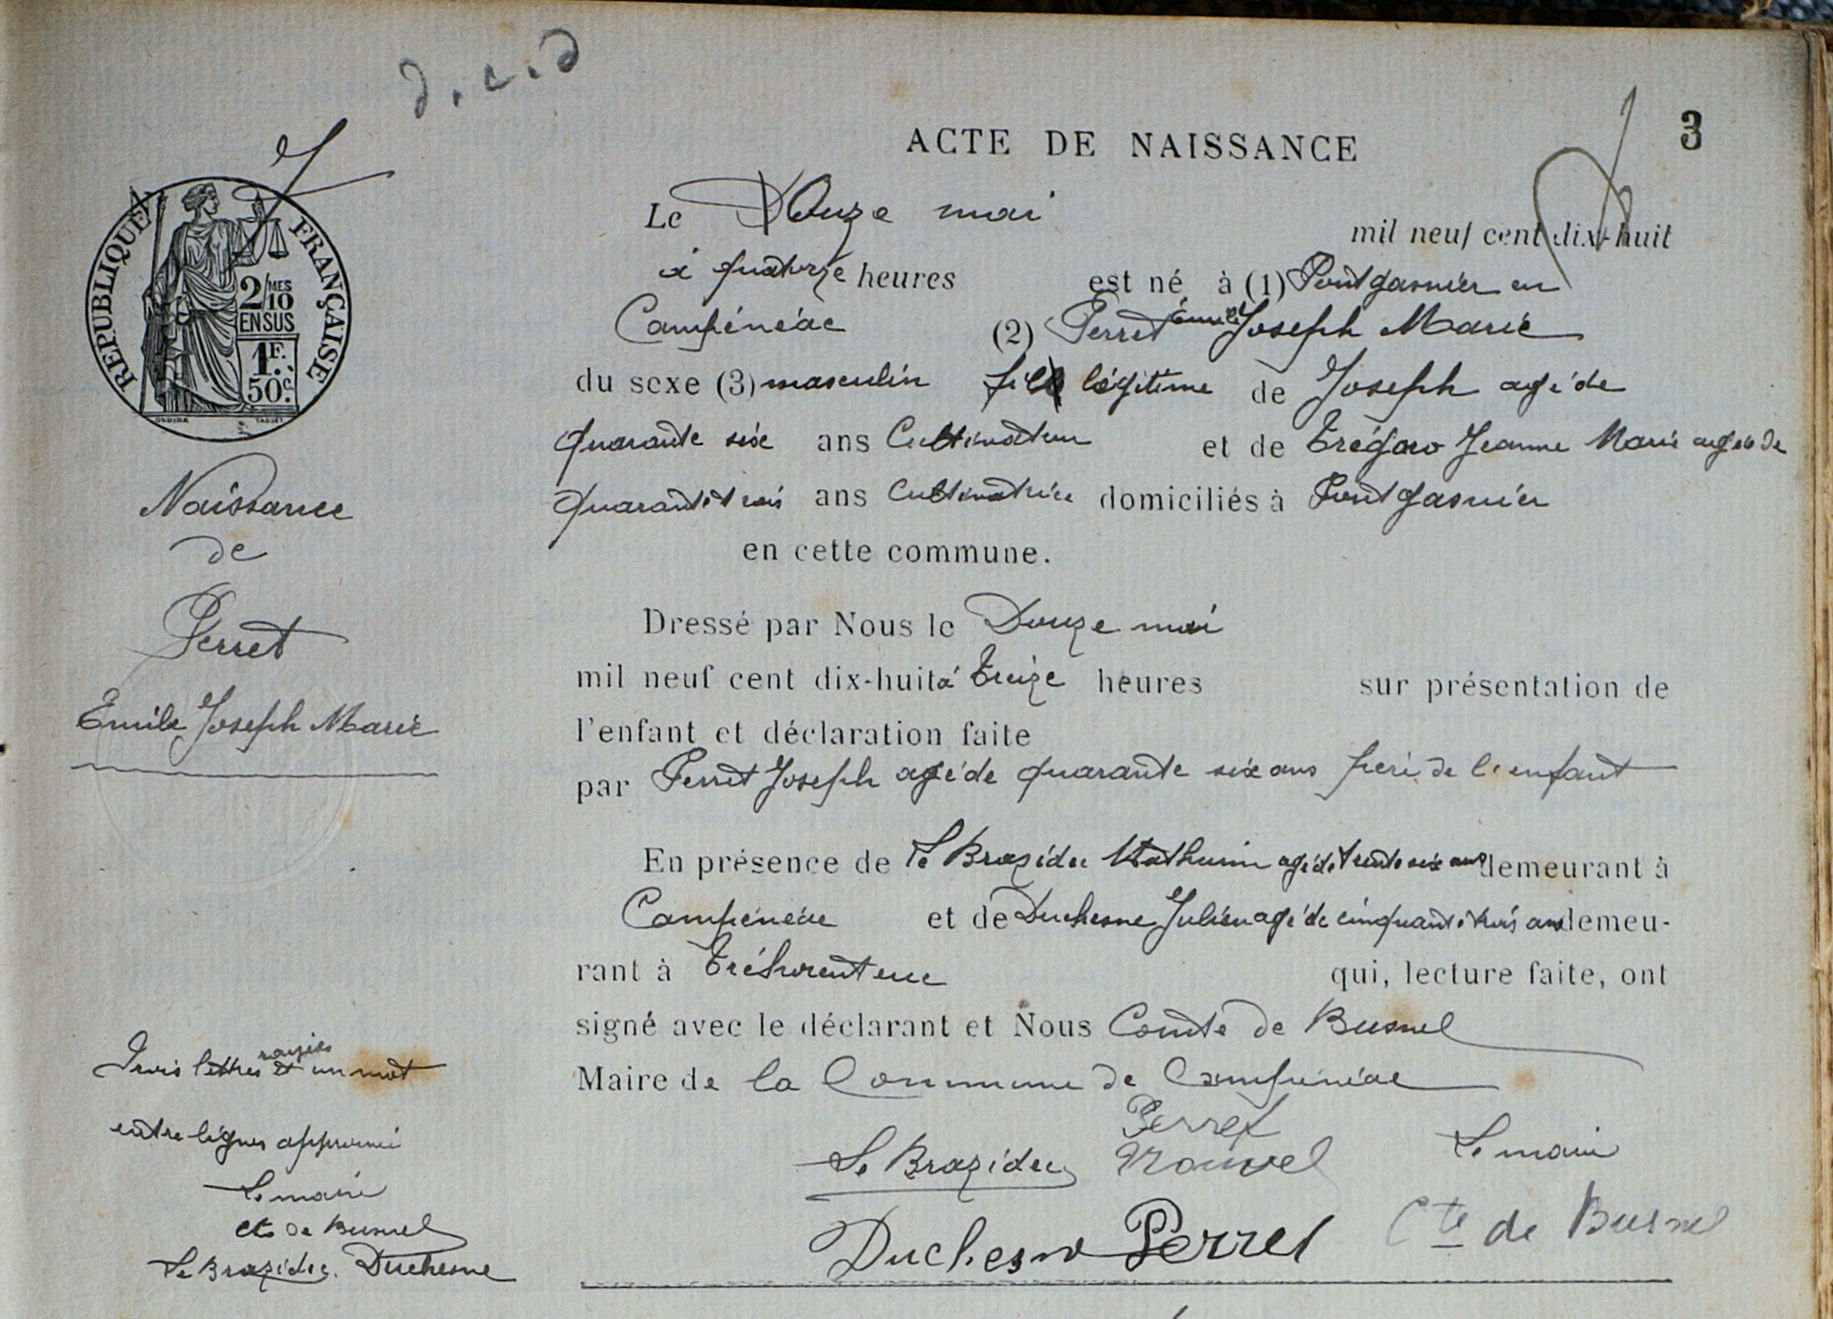 d.c.d
3
ACTE DE NAISSANCE
Le Onze mai mil neuf cent dix-huit
à quatorze heures est né à (1) Pontgasnier en
Campénéac (2) Perret Émile Joseph Marie
du sexe (3) masculin fil légitime de Joseph agé de
quarante six ans Cultivateur et de Trégaro Jeanne Marie agée de
quarante trois ans Cultivatrice domiciliés à Pontgasnier
en cette commune.
Dressé par Nous le Douze mai
mil neuf cent dix-huit à Treize heures sur présentation de
l'enfant et déclaration faite
par Perret Joseph agé de quarante six ans père de l'enfant
En présence de Le Brazidec Mathurin agé de trente six ans demeurant à
Campénéac et de Duchesne Julien agé de cinquante trois ans demeu-
rant à Tréhorenteuc qui, lecture faite, ont
signé avec le déclarant et Nous Comte de Busnel
Maire de la Commune de Campénéac
Perret
Le Brazidec Nouvel Le maire
Duchesne Perret Cte de Busnel
REPUBLIQUE FRANÇAISE
2/MES
10
EN SUS
1F.
50c.
Naissance
de
Perret
Emile Joseph Marie
rayées
Trois lettres et un mot
entre lignes approuvé
Le maire
Cte de Busnel
Le Brazidec Duchesne